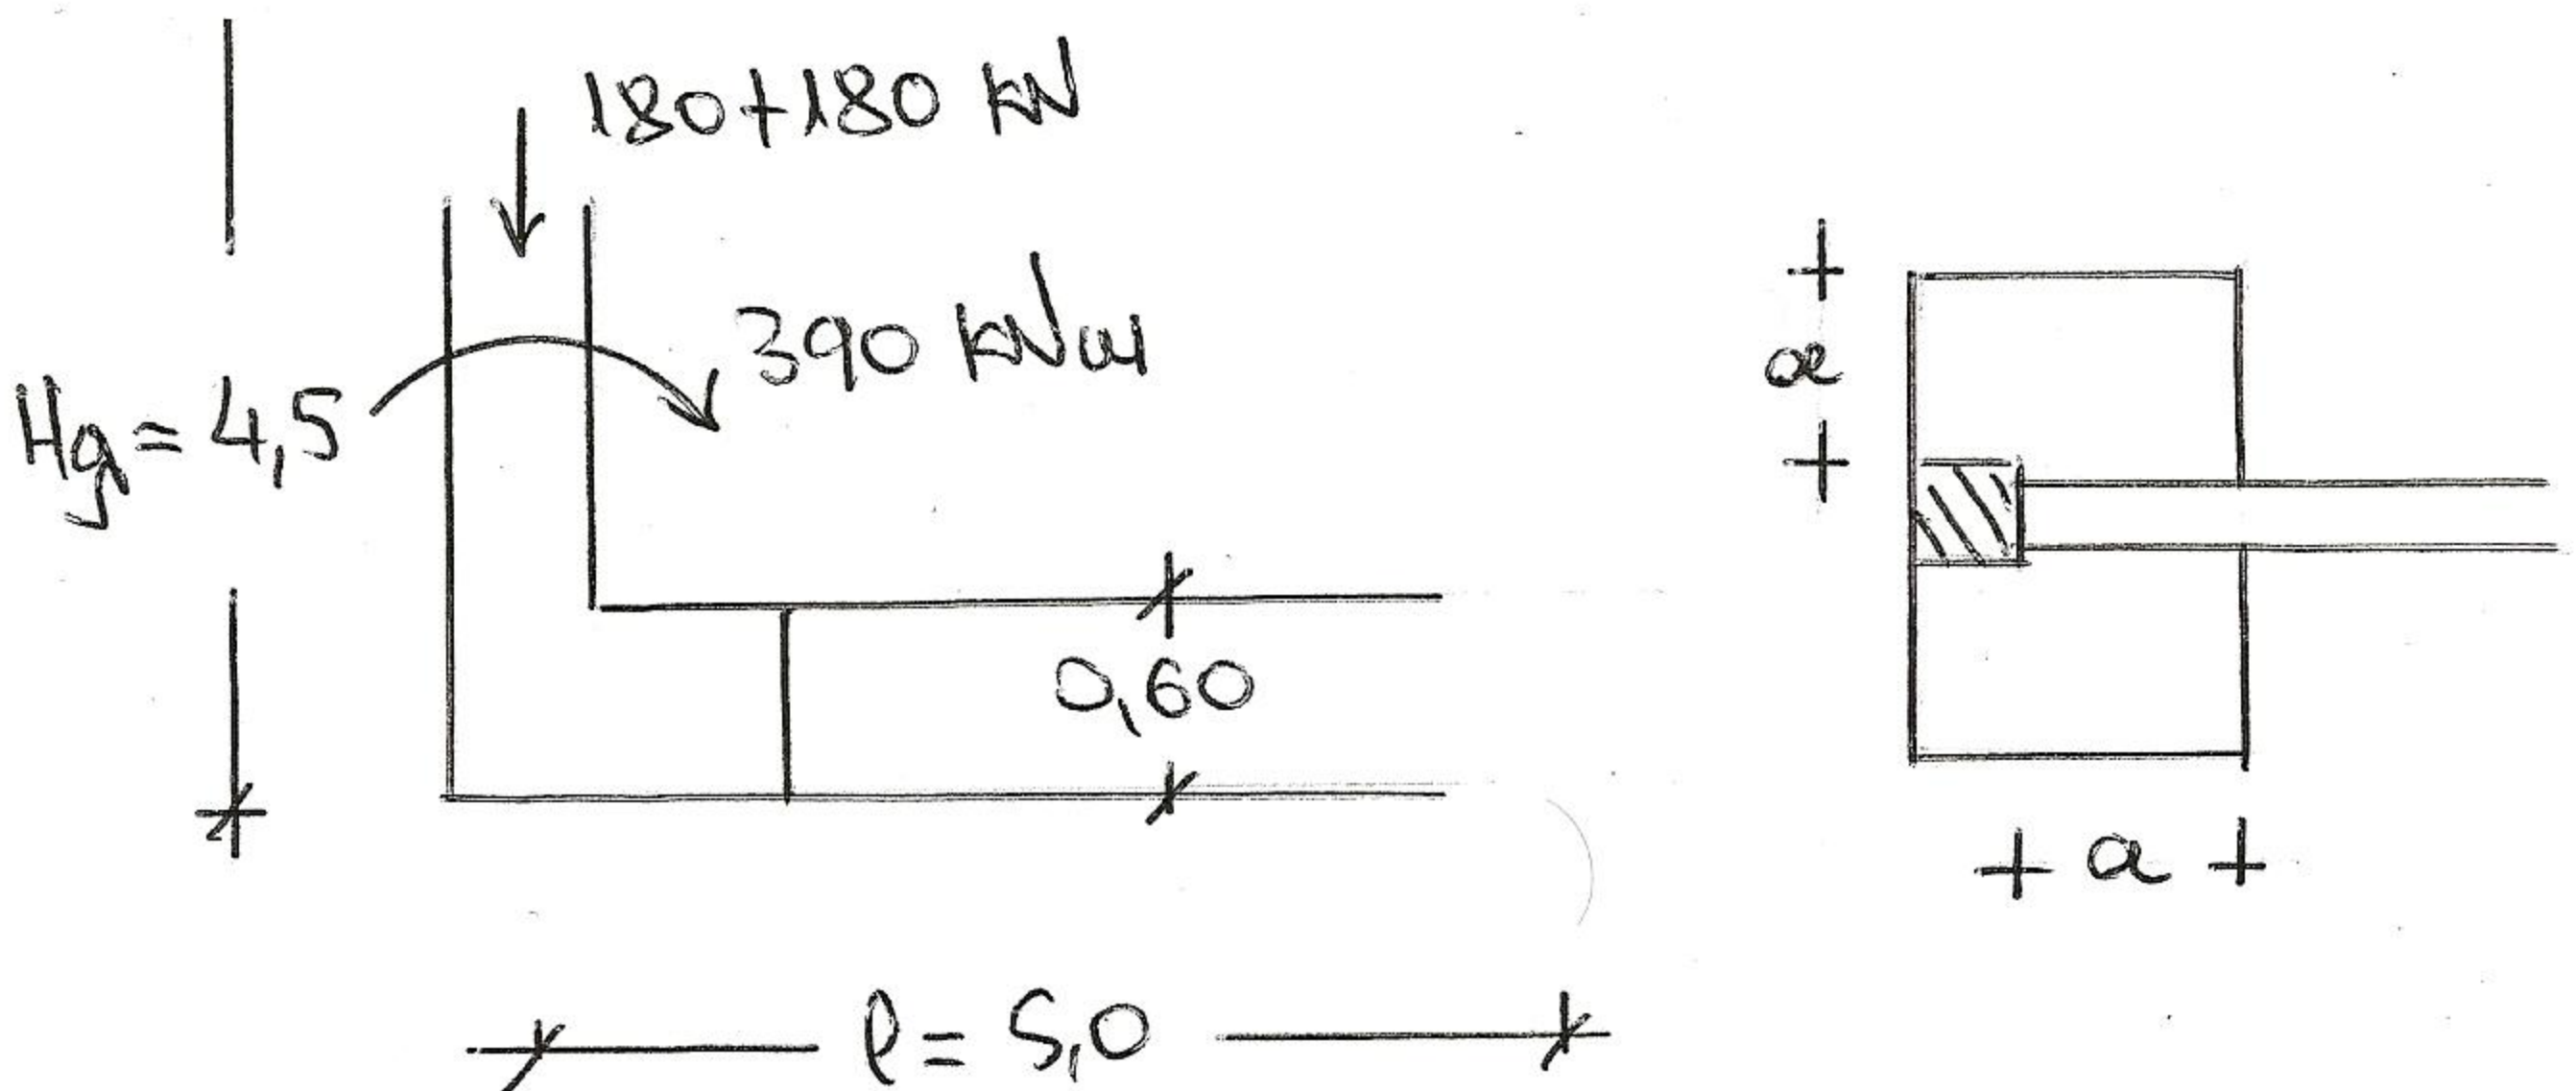 180+180 kN
390 kNm
Hg = 4,5
a
0,60
a
l = 5,0